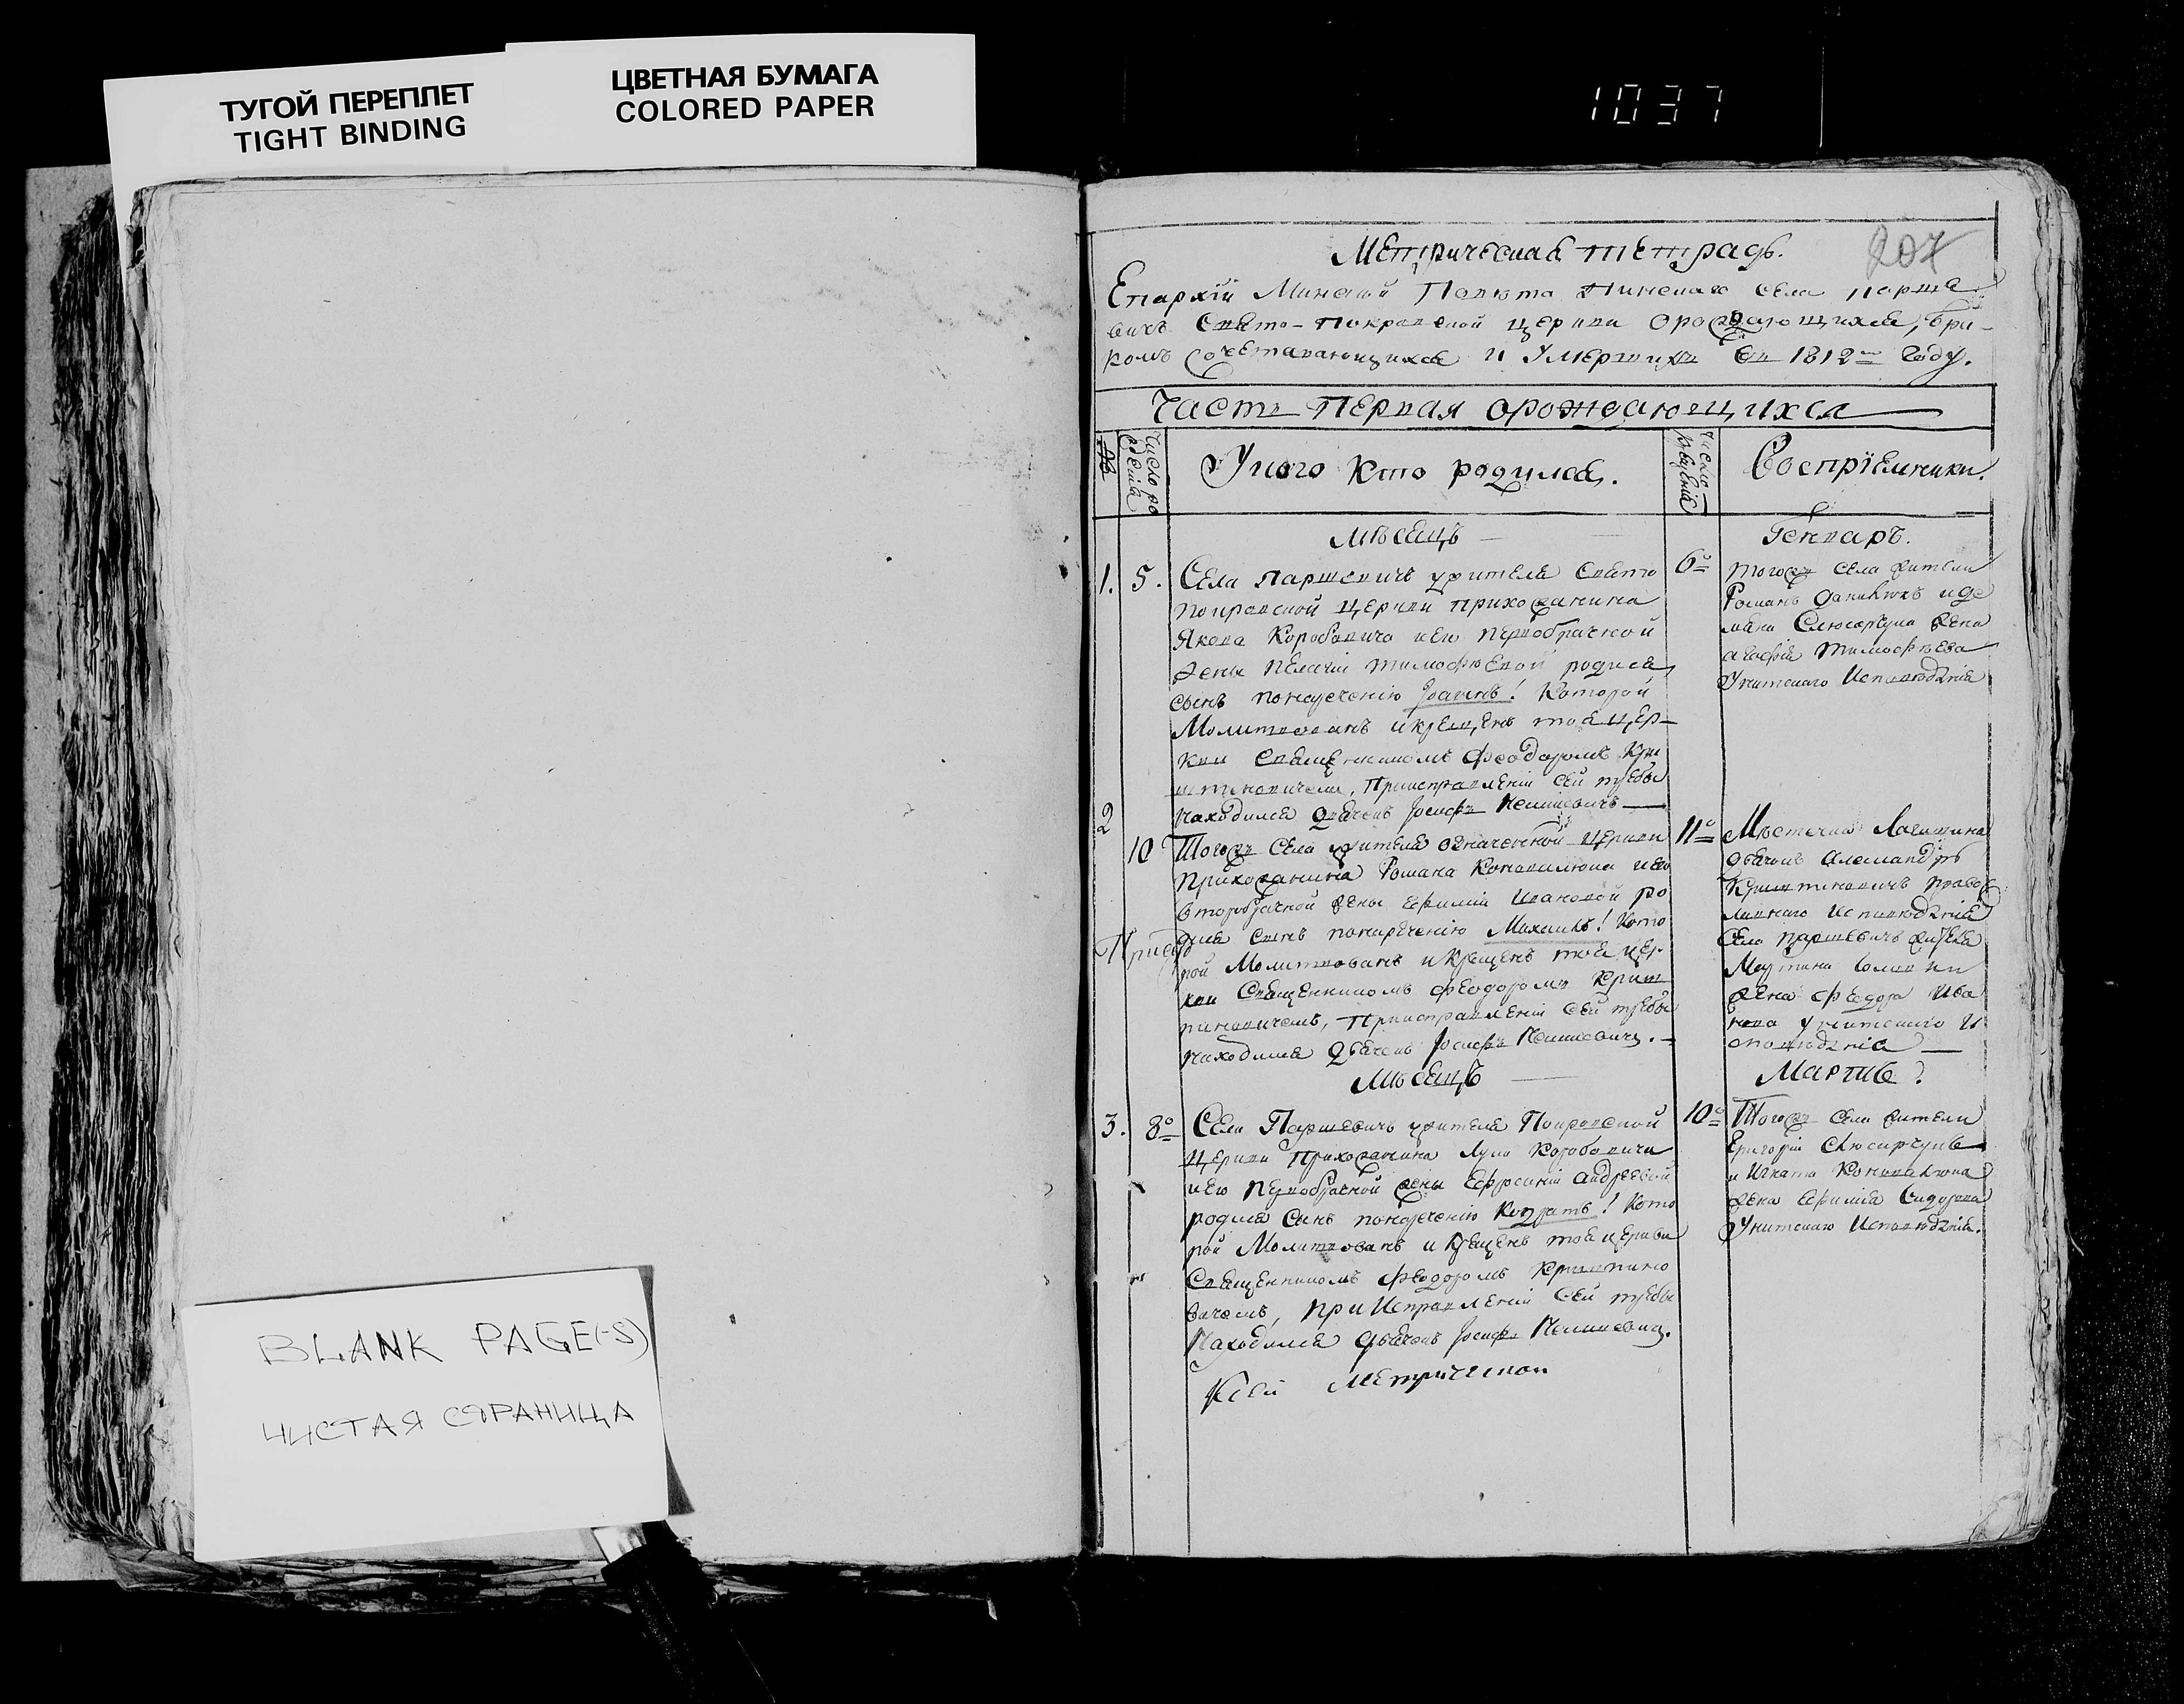 ТУГОЙ ПЕРЕПЛЕТ
TIGHT BINDING
ЦВЕТНАЯ БУМАГА
COLORED PAPER
1037
BLANK PAGE(-S)
ЧИСТАЯ СТРАНИЦА
207
Метрическая тетрадь.
Епархіи Минской Повѣта Пинскаго села Парше
вичъ Свято-Покровской церкви орождающихся, бра-
комъ сочетавающихся и Умершихъ въ 1812 году.
Часть Первая орождающихся
№
Число ро
жденія
У кого кто родился.
Число
крещенія
Воспріемники.
Мѣсецъ
Генварь.
1. 5.
Села Паршевичъ жителя Свято
Покровской церкви прихожанина
Якова Коробовича и его первобрачной
жены Пелагіи Тимофѣевой родился
сынъ понареченію Іоаннъ! Которой
Молитвованъ и крещенъ тоя цер-
кви Священникомъ Феодоромъ Кри
штиновичемъ, Приисправленіи сей требы
находился дьячекъ Іосифъ
6
Тогожъ села жители
Романъ Данилюкъ и де
жена
агафія Тимофѣева
Унитскаго Исповѣданія
2 10
Тогожъ села жителя означенной церкви
Прихожанина Романа Коновалюка и его
второбрачной жены Ефиміи Ивановой ро
дился сынъ понареченію Махаилъ! Кото
рой Молитвованъ и крещенъ тоя цер-
кви Священникомъ Феодоромъ Кришт
тиновичемъ, Приисправленіи сей требы
находился дьячекъ Іосифъ
11
Мѣстечка Логишина
дьячокъ Александръ
Криштиновичъ право
славнаго Исповѣданія
Села Паршевичъ жителя
Мартина
жена Федора Ива
нова Унитскаго И
споведанія
Мѣсецъ
Мартъ.
3. 8
Села Паршевичъ жителя Покровской
церкви Прихожанина Луки Коробовича
и его первобрачной жены Ефросиніи Андреевой
родился сынъ понареченію Кодратъ! Кото
рой Молитвованъ и крещенъ тоя церкви
Священникомъ Феодоромъ Криштино
вичемъ, при Исправленіи сей требы
Находился дьячекъ Іосифъ
10
Тогожъ села жители
Григорій
и Игната Коновалюка
жена Ефимія Сидорова
Унитскаго Исповѣданія.
К сей Метрической